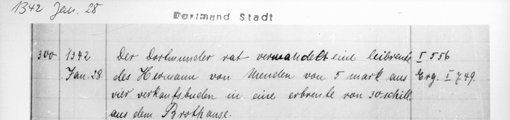 1342 Jan. 28
Dortmund Stadt
300 1342 Der Dortmunder rat verwandelt eine leibrente I 556
Jan. 28. des Hermann von Menden von 5 mark aus Erg. I 749.
vier verkaufsbuden in eine erbrente von 30 schill.
aus dem Brothause.